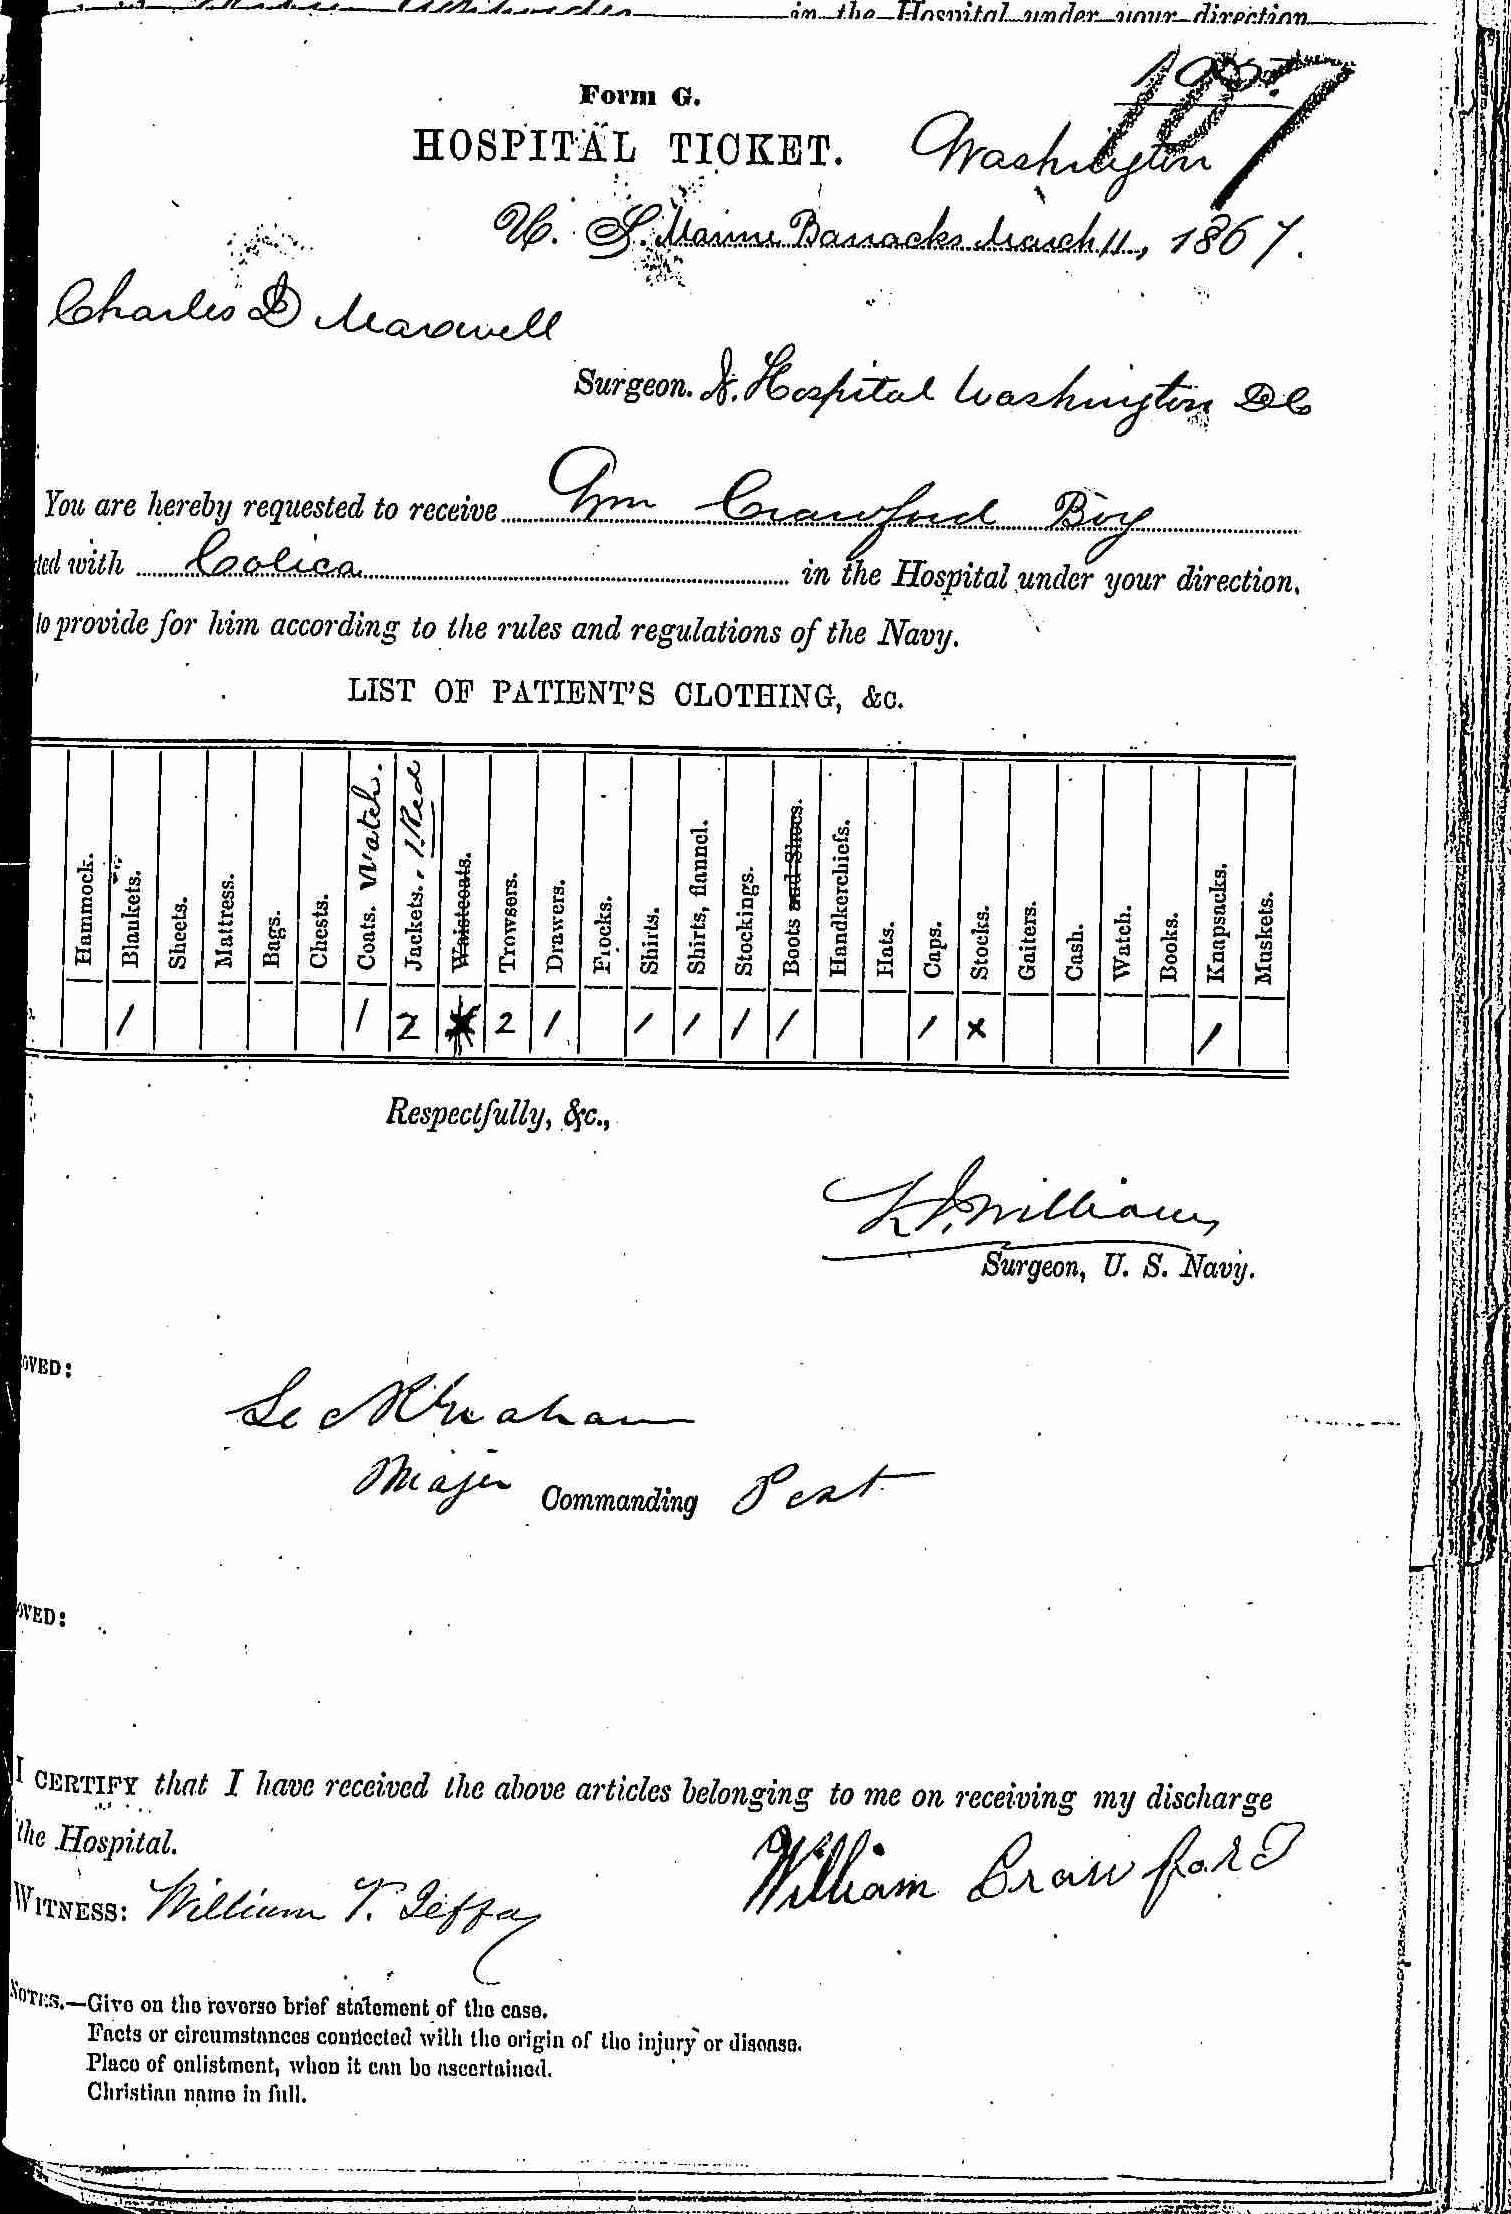 in the Hospital under your direction
Form G.
187
HOSPITAL TICKET. Washington
U. S. Marine Barracks March 11, 1867.
Charles D Maxwell
Surgeon. N. Hospital Washington DC
You are hereby requested to receive Wm Crawford Boy
ted with Colica in the Hospital under your direction,
to provide for him according to the rules and regulations of the Navy.
LIST OF PATIENT'S CLOTHING, &c.
Hammock. Blankets. Sheets. Mattress. Bags. Chests. Coats. Watch. Jackets. 1 Red Waistcoats. Trowsers. Drawers. Frocks. Shirts. Shirts, flannel. Stockings. Boots and Shoes. Handkerchiefs. Hats. Caps. Stocks. Gaiters. Cash. Watch. Books. Knapsacks. Muskets.
1 1 2 2 1 1 1 1 1 1 x 1
Respectfully, &c.,
Williams
Surgeon, U. S. Navy.
OVED:
Graham
Major Commanding Post
OVED:
I CERTIFY that I have received the above articles belonging to me on receiving my discharge
the Hospital.
William Crawford
WITNESS: William T.
NOTES.—Give on the reverse brief statement of the case.
Facts or circumstances connected with the origin of the injury or disease.
Place of enlistment, when it can be ascertained.
Christian name in full.